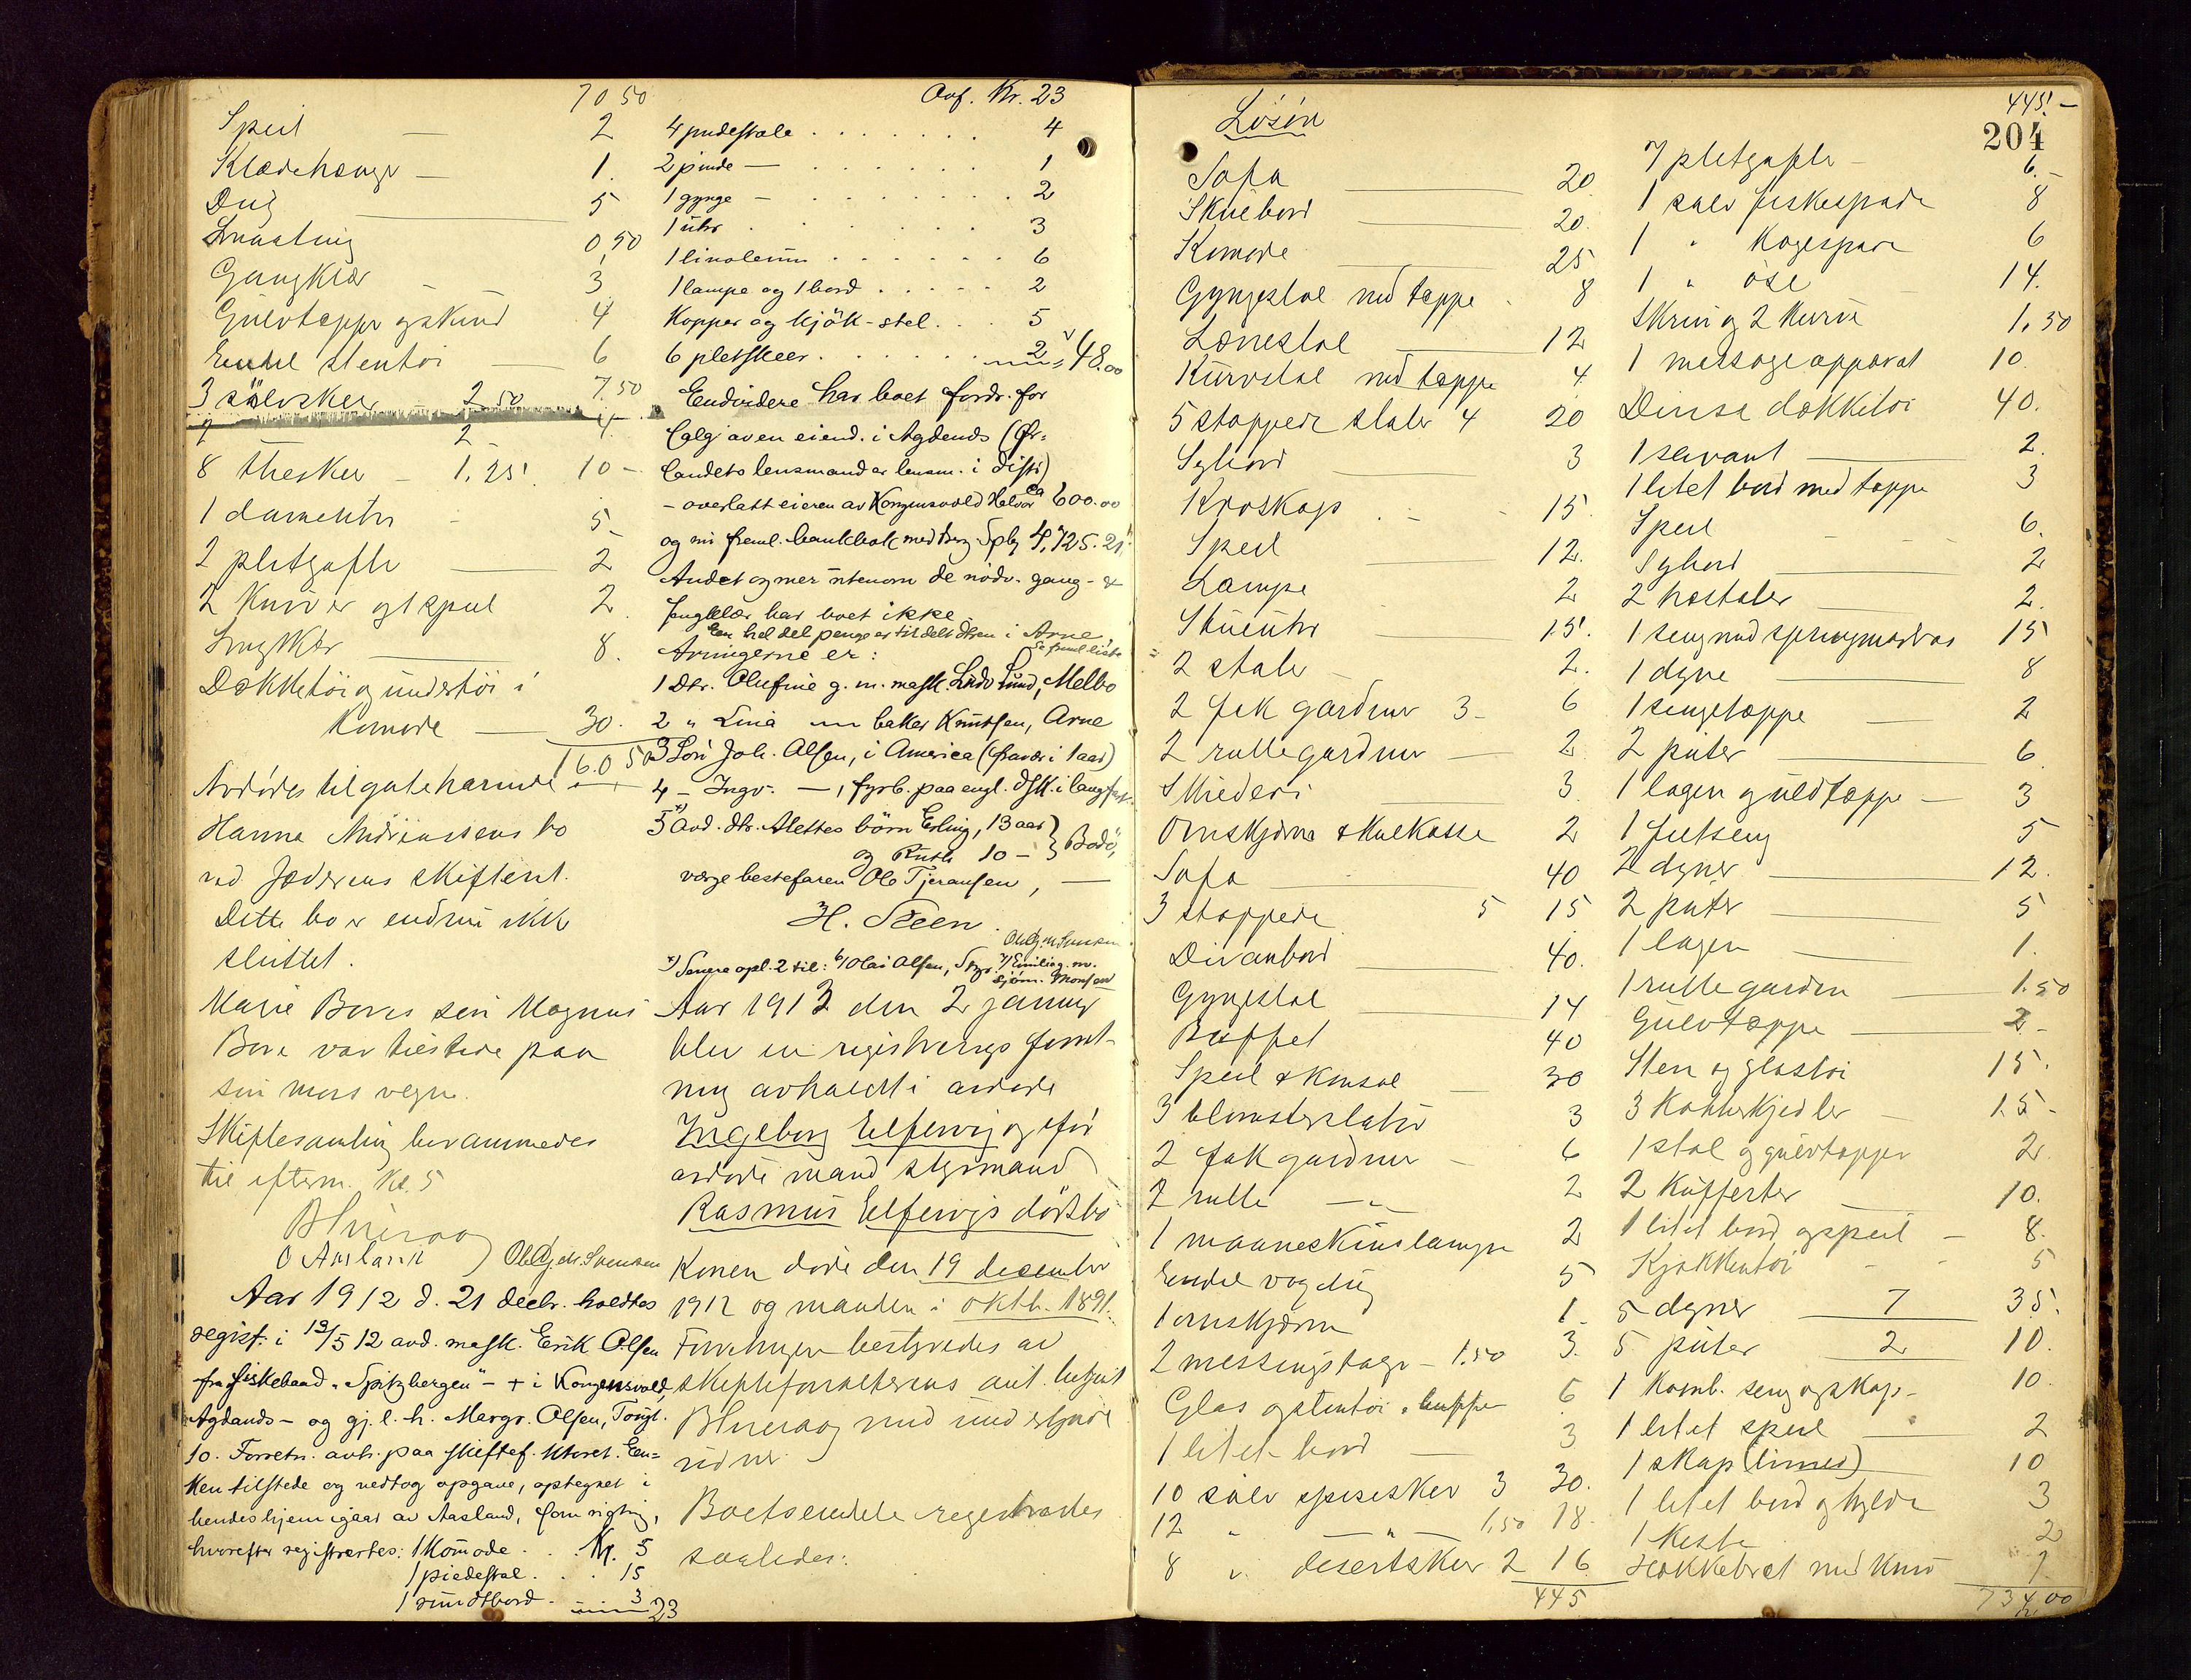 70 50
Speil — 2
Klædehænger — 1.
Dug — 5
Smaating 0,50
Gangklær 3
Gulvtæpper og skind 4
Endel stentøi 6
3 sølvskeer 2.50 7.50
2 2 4.
8 theskeer 1.25 10 -
1 dameuhr 5
2 pletgafle 2
2 Kurver og 1 speil 2
Sengklær 8.
Dækketøi og undertøi i
Komode — 30.
160 50
Avdødes tilgodehavende i
Hanna Andreassens bo
ved Jæderens skifteret.
Dette bo er endnu ikke
sluttet.
Marie Bores søn Magnus
Bore var tilstede paa
sin mors vegne.
Skiftesamling berammedes
til efterm. Kl. 5
O Aasland Ole Gjedr. Svensen
Aar 1912 d. 21 decbr. holdtes
regist. i 13/5 12 avd. mask. Erik Olsen
fra fiskebaad „Spitzbergen" - + i Kongensvold,
Agdands - og gj. l. h. Margr. Olsen, Tougt.
10. Forretn. avh. paa skiftef. ktoret. En-
ken tilstede og vedtog opgave, optegnet i
hendes hjem igaar av Aasland, som rigtig,
hvorefter registrertes: 1 Komode . . . Kr. 5
1 piedestal . . . 15
1 rundtbord - 3
23
Ovf. Kr. 23
4 pudestole . . . . . . . 4
2 pinde — . . . . . . 1
1 gynge — . . . . . . . 2
1 uhr . . . . . . . 3
1 linoleum . . . . . . 6
1 lampe og 1 bord . . . . . 2
Kopper og kjök-stel . . . 5
6 pletskeer . . . . . . 2 48.00
Endvidere har boet fordr. for
salg av en eiend. i Agdends (Ør-
landets lensmand er lensm. i distr)
- overlatt eieren av Kongensvold Halvor ca 600.00
og ini freml. bankbok med Berg. Spb 4,725.21
Andet og mer utenom de nödv. gang- &
sengklær har boet ikke.
En hel del penge er tildelt dtren i Arne,
Se freml. liste
Arvingerne er:
1 Dtr. Olufine g. m. mask. Ludv Lund, Melbo
2 „ Lina — baker Knutsen, Arne
3 Sön Joh. Olsen, i America (fravær i 1 aar)
4 — Ingv. —, fyrb. paa engl. dsk. i langfart.
5 x) avd. dtr. Alettes börn Erling, 13 aar
og Ruth 10 — } Bodö,
værge bestefaren Ole Tjeransen, —
H. Steen.
Ole Gjedr Svensen
x) Senere opl. 2 til: 6/ Olai Olsen, Stgr. 7/ Emilie g. m.
sjöm. Monsen
Aar 1913 den 2 januar
blev en registrerings forret-
ning avholdt i avdøde
Ingeborg Elfervig og før
avdøde mand styrmand
Rasmus Elfervigs dødsbo
Konen døde den 19 december
1912 og manden i oktb. 1891.
Forretningen bestyredes av
skifteforvalterens aut. betjent
med undertegnede
vidner.
Boets endele registrertes
saaledes:
Løsøre
Sofa — 20.
Skuebord — 20.
Komode — 25
Gyngestol med tæppe 8
Lænestol — 12
Kurvstol med tæppe 4
5 stoppede stoler 4 20
Sybord — 3
Kroskap 15
Speil — 12.
Lampe — 2
Stueuhr — 15.
2 stoler 2.
2 fek gardiner 3 - 6
2 rullegardiner — 2
Skilderi 3
Ovnskjerm & kulkasse 2
Sofa — 40
3 stoppede 5 15
Divanbord — 40.
Gyngestol — 14
Buffet 40
Speil & konsol — 30
3 blomsterstativ 3
2 fek gardiner — 6
2 rulle —„— 2
1 maaneskinslampe 2
Endel vogdug 5
1 ovnskjerm 1
2 messingstager - 1.50 3.
Glas og stentøi i buffet 6
1 litet bord — 3
10 sølv spiseskeer 3 30.
12 „ —„— 1.50 18.
8 „ desertskeer 2 16
445
445.-
204
7 pletgafle — 6.-
1 sølv fiskespade 8
1 „ Kagespade 6
1 „ øse 14.
Skrin og 2 kurve 1.50
1 massageapparat 10.
Diverse dækketøi 40.
1 servant — 2.
1 litet bord med tæppe 3
Speil 6.
Sybord — 2
2 træstoler — 2.
1 seng med springmadras 15
1 dyne — 8
1 sengetæppe — 2
2 puter — 6
1 lagen og uldtæppe — 3
1 feltseng 5
2 dyner — 12.
2 puter — 5
1 lagen — 1.
1 rullegardin — 1.50
Gulvtæppe — 2 -
Sten og glastøi 15.
3 Kobberkjedler 15 -
1 stol og gulvtæpper 2
2 Kufferter 10.
1 litet bord og speil — 8.
Kjøkkentøi 5
5 dyner — 7 35.
5 puter 2 10.
1 Komb. seng og skap — 10.
1 litet speil — 2
1 skap (linned) 10
1 litet bord og hylde 3
1 Kiste 2
Hakkebret med kniv 1
734,00